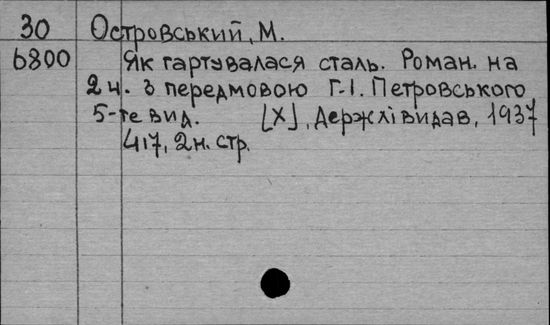 30 Островський, М.
6800 Як гартувалася сталь. Роман. на
2 ч. З передмовою Г.І. Петровського
5-те вид. [X], Держлівидав, 1937
417, 2н. стр.